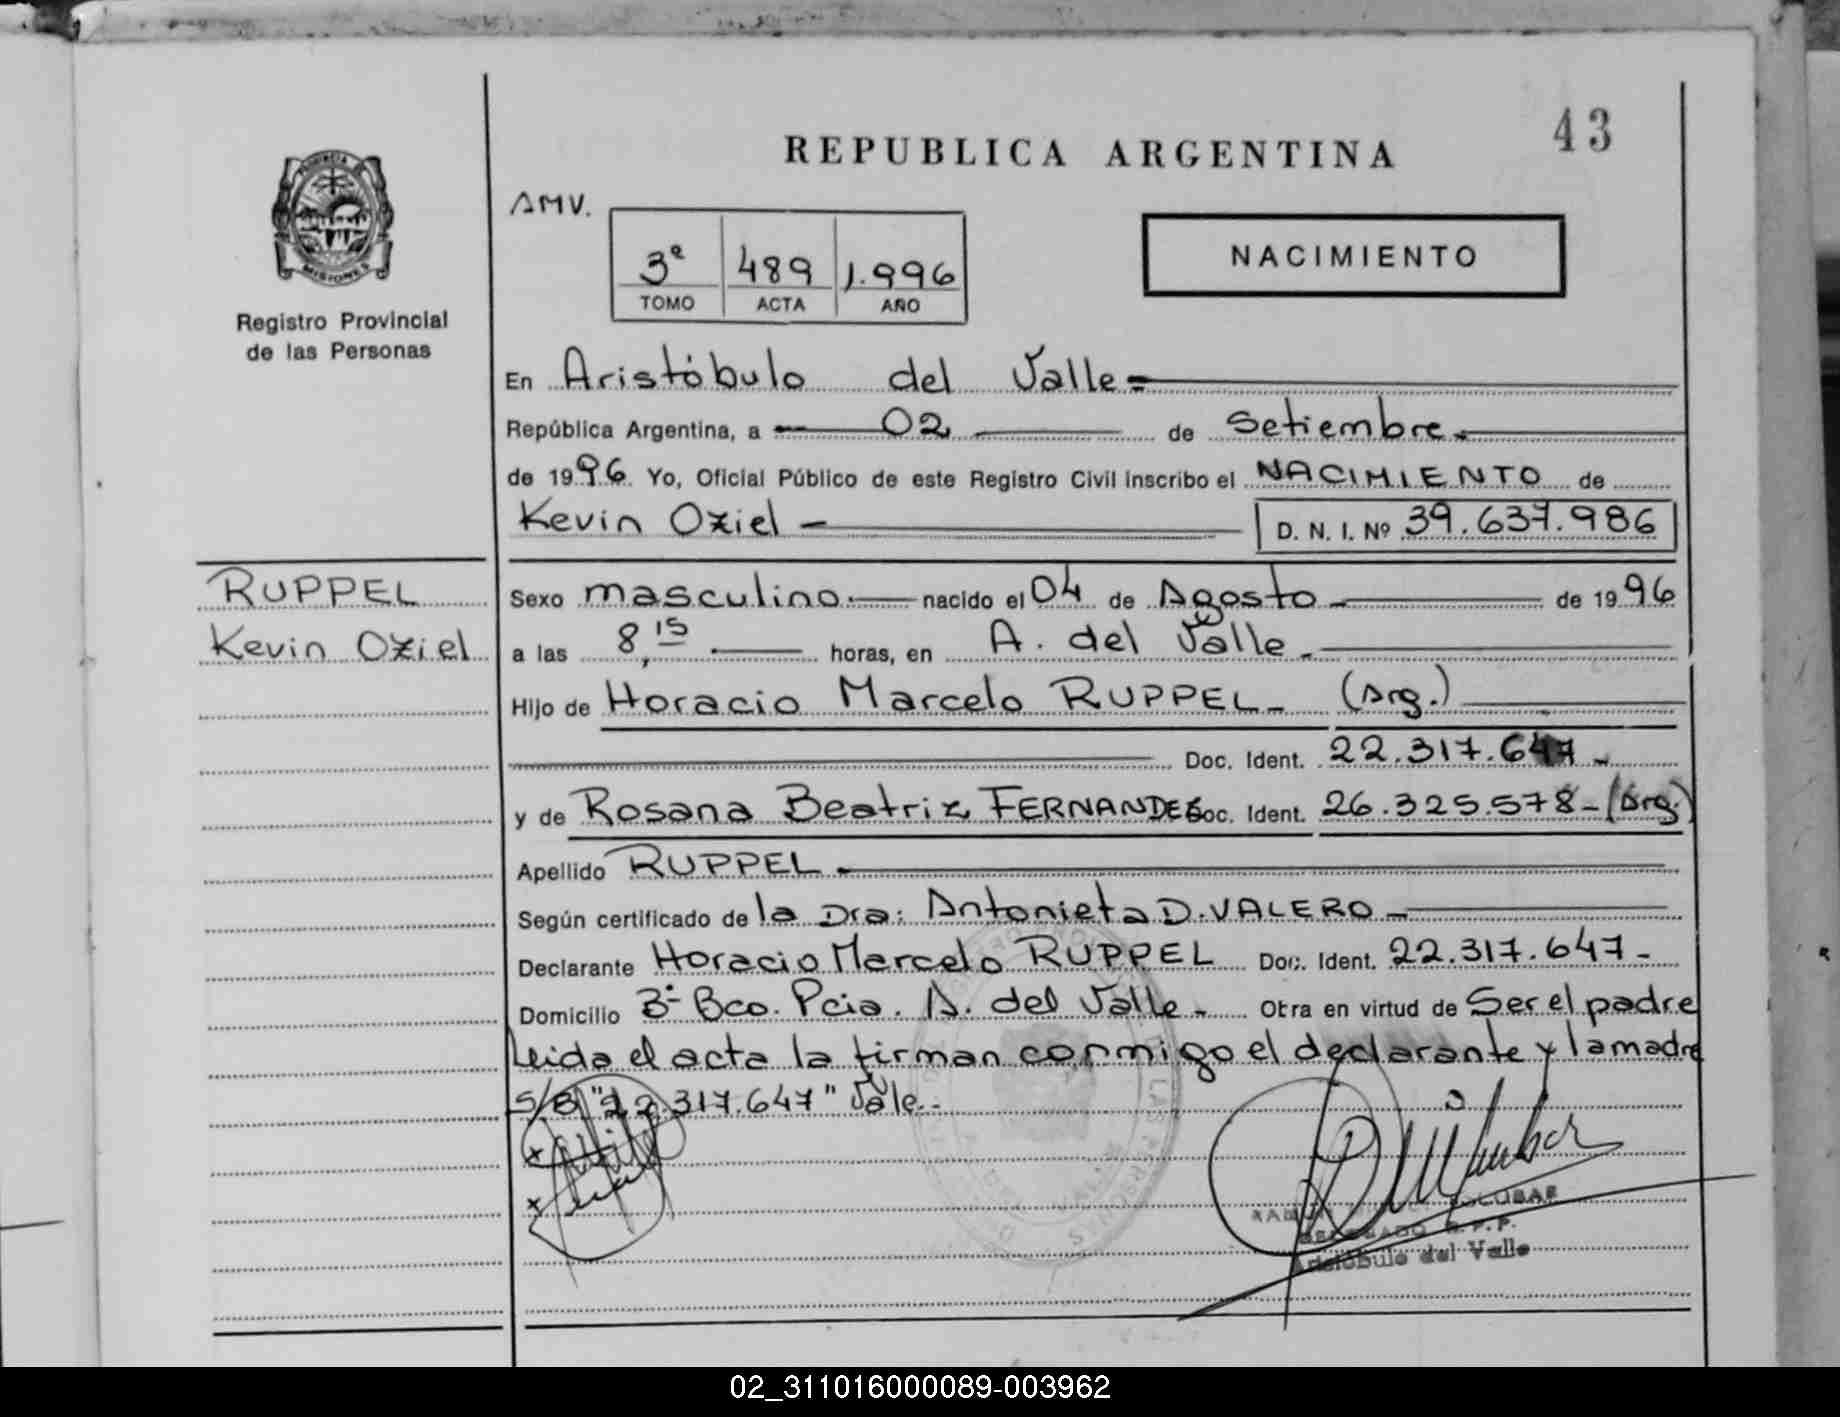 43
REPUBLICA ARGENTINA
AMV.
3ª 489 1.996
TOMO ACTA AÑO
NACIMIENTO
PROVINCIA DE
MISIONES
Registro Provincial
de las Personas
En Aristóbulo del Valle=
República Argentina, a 02 de Setiembre.
de 1996. Yo, Oficial Público de este Registro Civil inscribo el NACIMIENTO de
Kevin Oziel - D. N. I. Nº 39.637.986
RUPPEL
Kevin Oziel
Sexo masculino.- nacido el 04 de Agosto - de 1996
a las 8,15 horas, en A. del Valle.
Hijo de Horacio Marcelo RUPPEL- (Arg.)
Doc. Ident. 22.317.647-
y de Rosana Beatriz FERNANDES Doc. Ident. 26.325.578-(Arg.)
Apellido RUPPEL.
Según certificado de la Dra: Antonieta D. VALERO-
Declarante Horacio Marcelo RUPPEL Doc. Ident. 22.317.647-
Domicilio Bº Bco. Pcia. A. del Valle.- Otra en virtud de Ser el padre
Leida el acta la firman conmigo el declarante y la madre
S/B "22.317.647" Vale.-
x
x
Aristóbulo del Valle
02_311016000089-003962